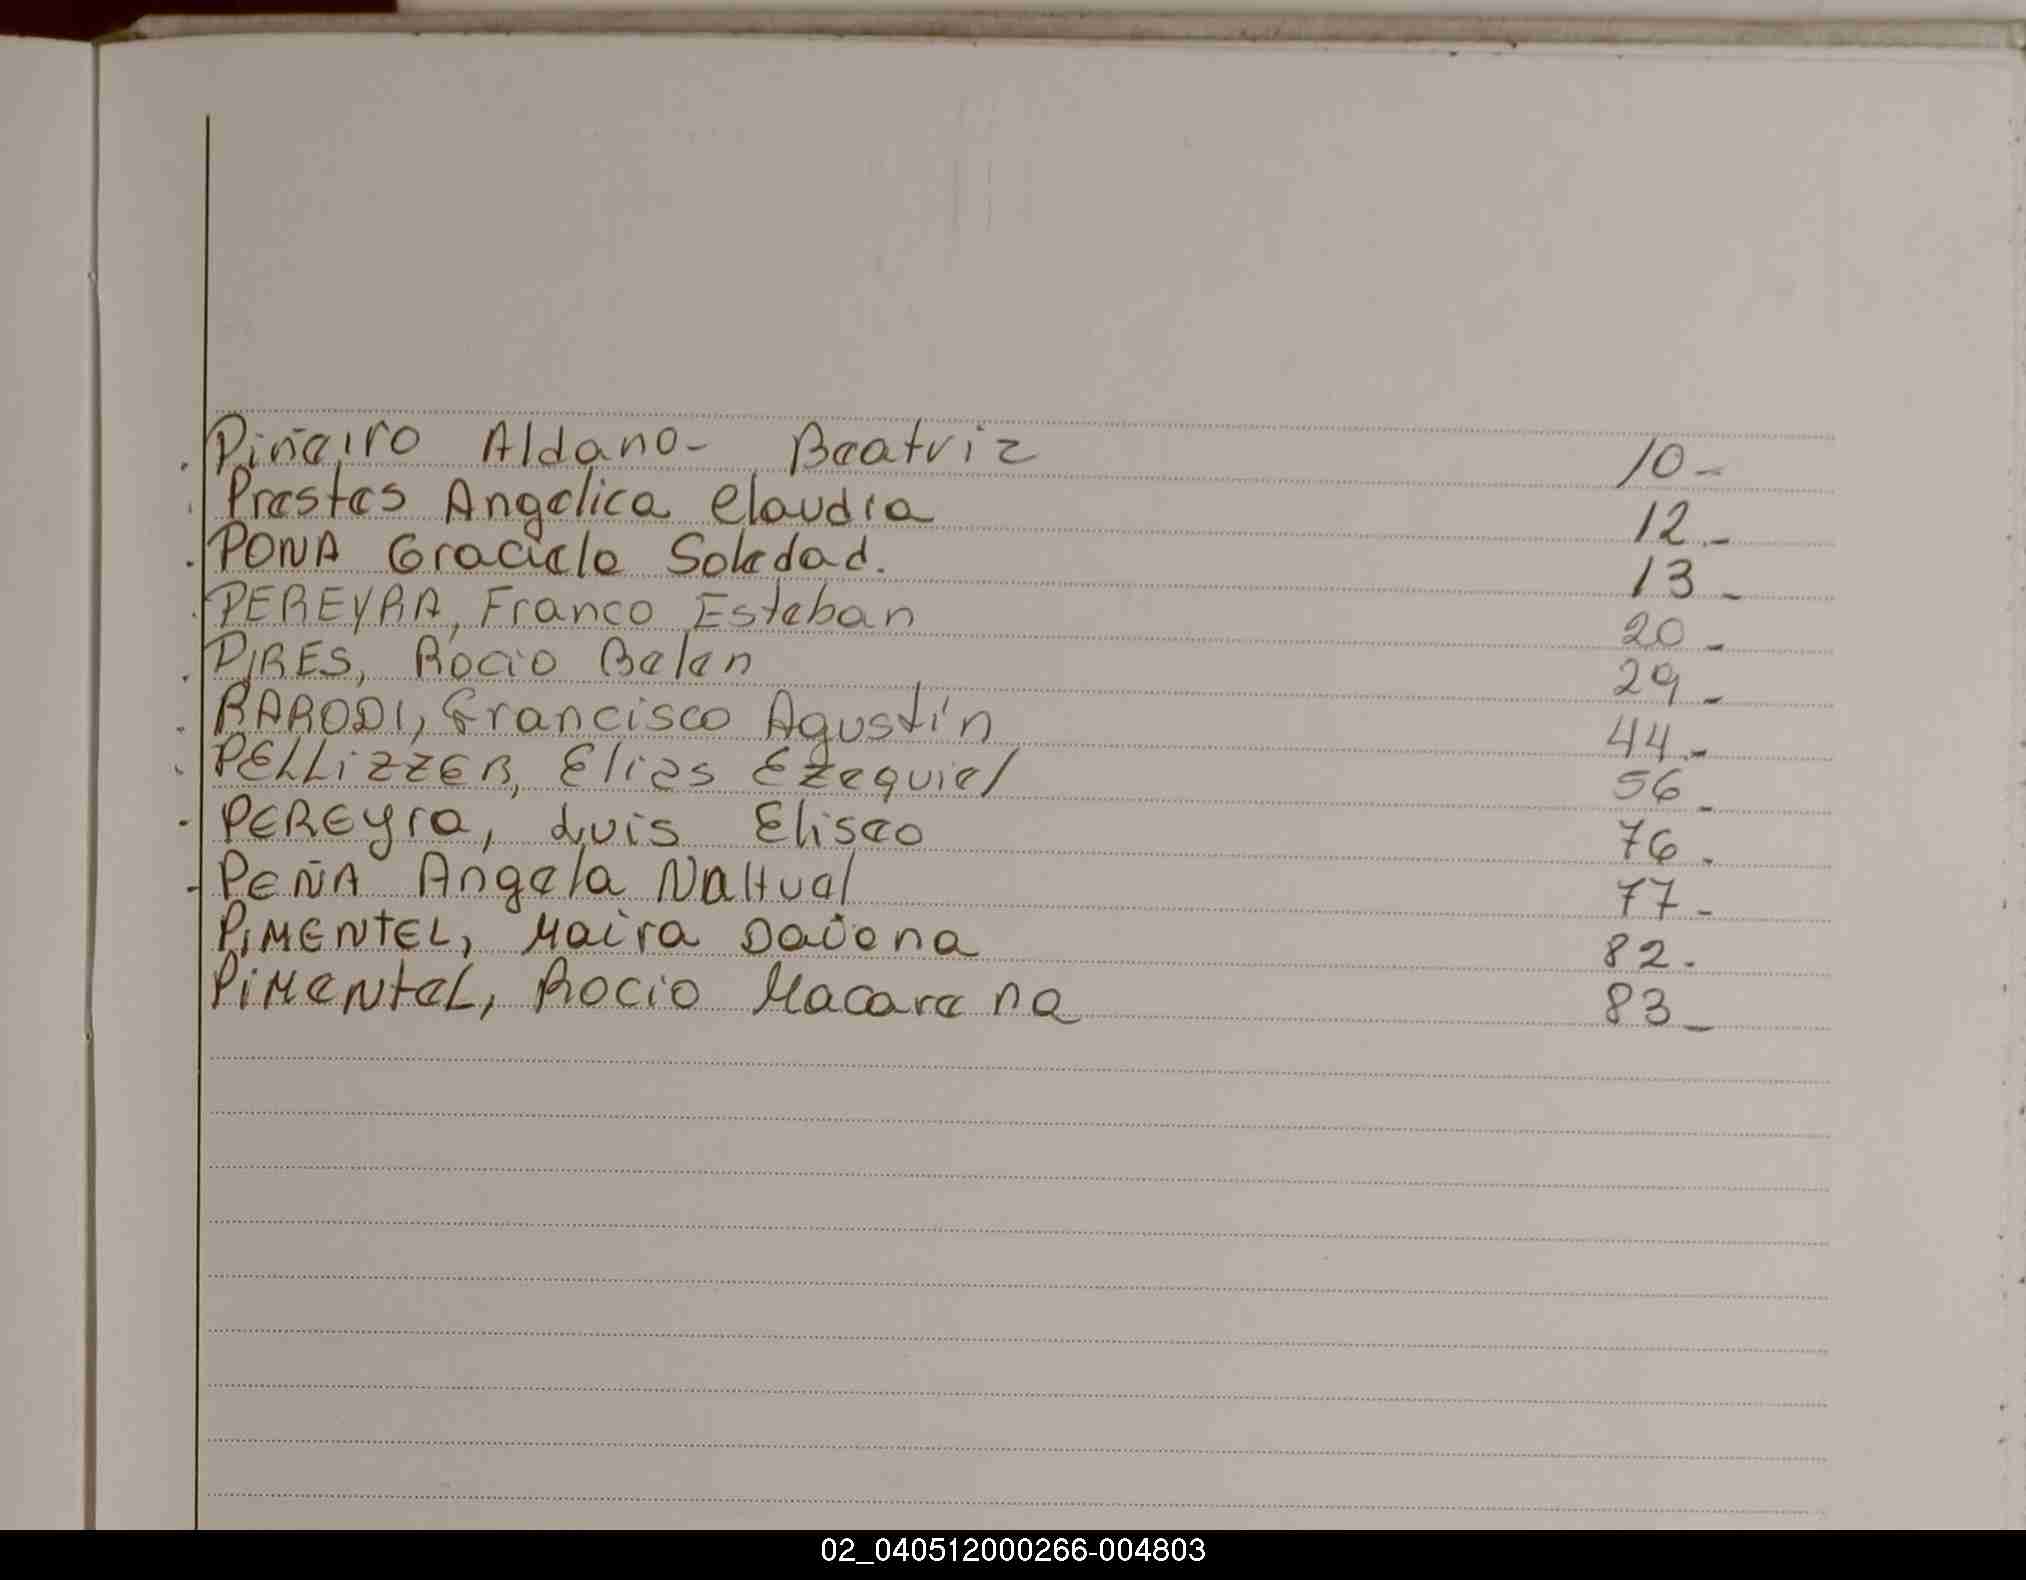 Piñeiro Aldano- Beatriz 10-
Prestes Angelica Claudia 12.-
PONA Graciela Soledad. 13-
PEREYRA, Franco Esteban 20-
PIRES, Rocio Belen 29-
BARODI, Francisco Agustín 44.-
PELLiZZER, Elias Ezequiel 56-
PEREyra, Luis Eliseo 76.
PEÑA Angela NaHual 77-
PiMENTEL, Maira Daiana 82.
PiMeNteL, Rocio Macarena 83-
02_040512000266-004803